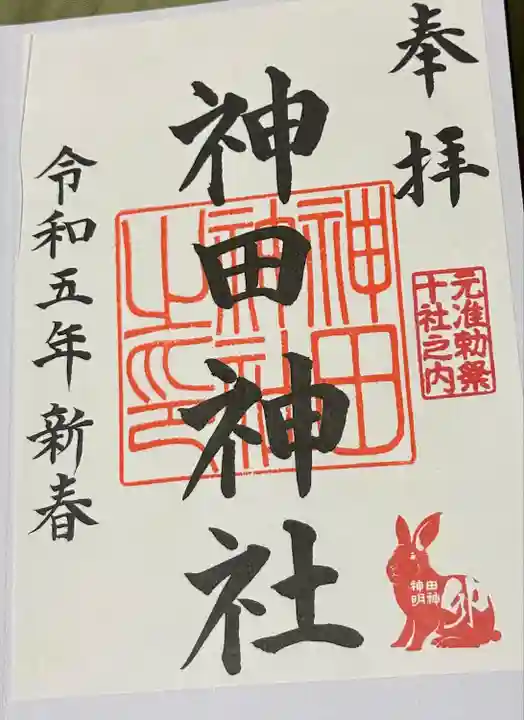 奉拝
元准勅祭
十社之内
神田神社
神田
神社
之印
田神
神明
卯
令和五年新春